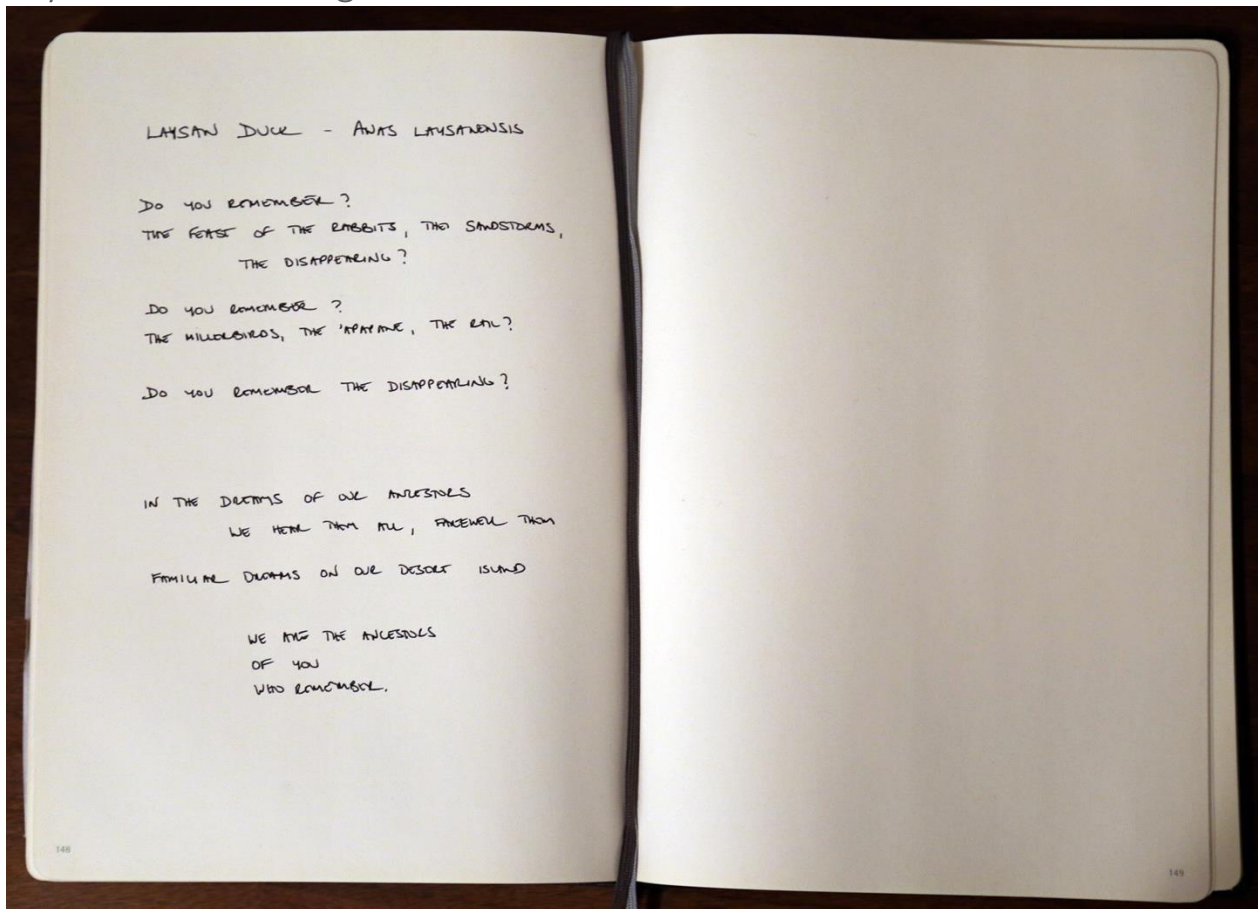 LAYSAN DUCK - ANAS LAYSANENSIS
DO YOU REMEMBER?
THE FEAST OF THE RABBITS, THE SANDSTORMS,
THE DISAPPEARING?
DO YOU REMEMBER?
THE MILLERBIRDS, THE 'APAPANE, THE RAIL?
DO YOU REMEMBER THE DISAPPEARING?
IN THE DREAMS OF OUR ANCESTORS
WE HEAR THEM ALL, FAREWELL THEM
FAMILIAR DREAMS ON OUR DESERT ISLAND
WE ARE THE ANCESTORS
OF YOU
WHO REMEMBER.
148
149